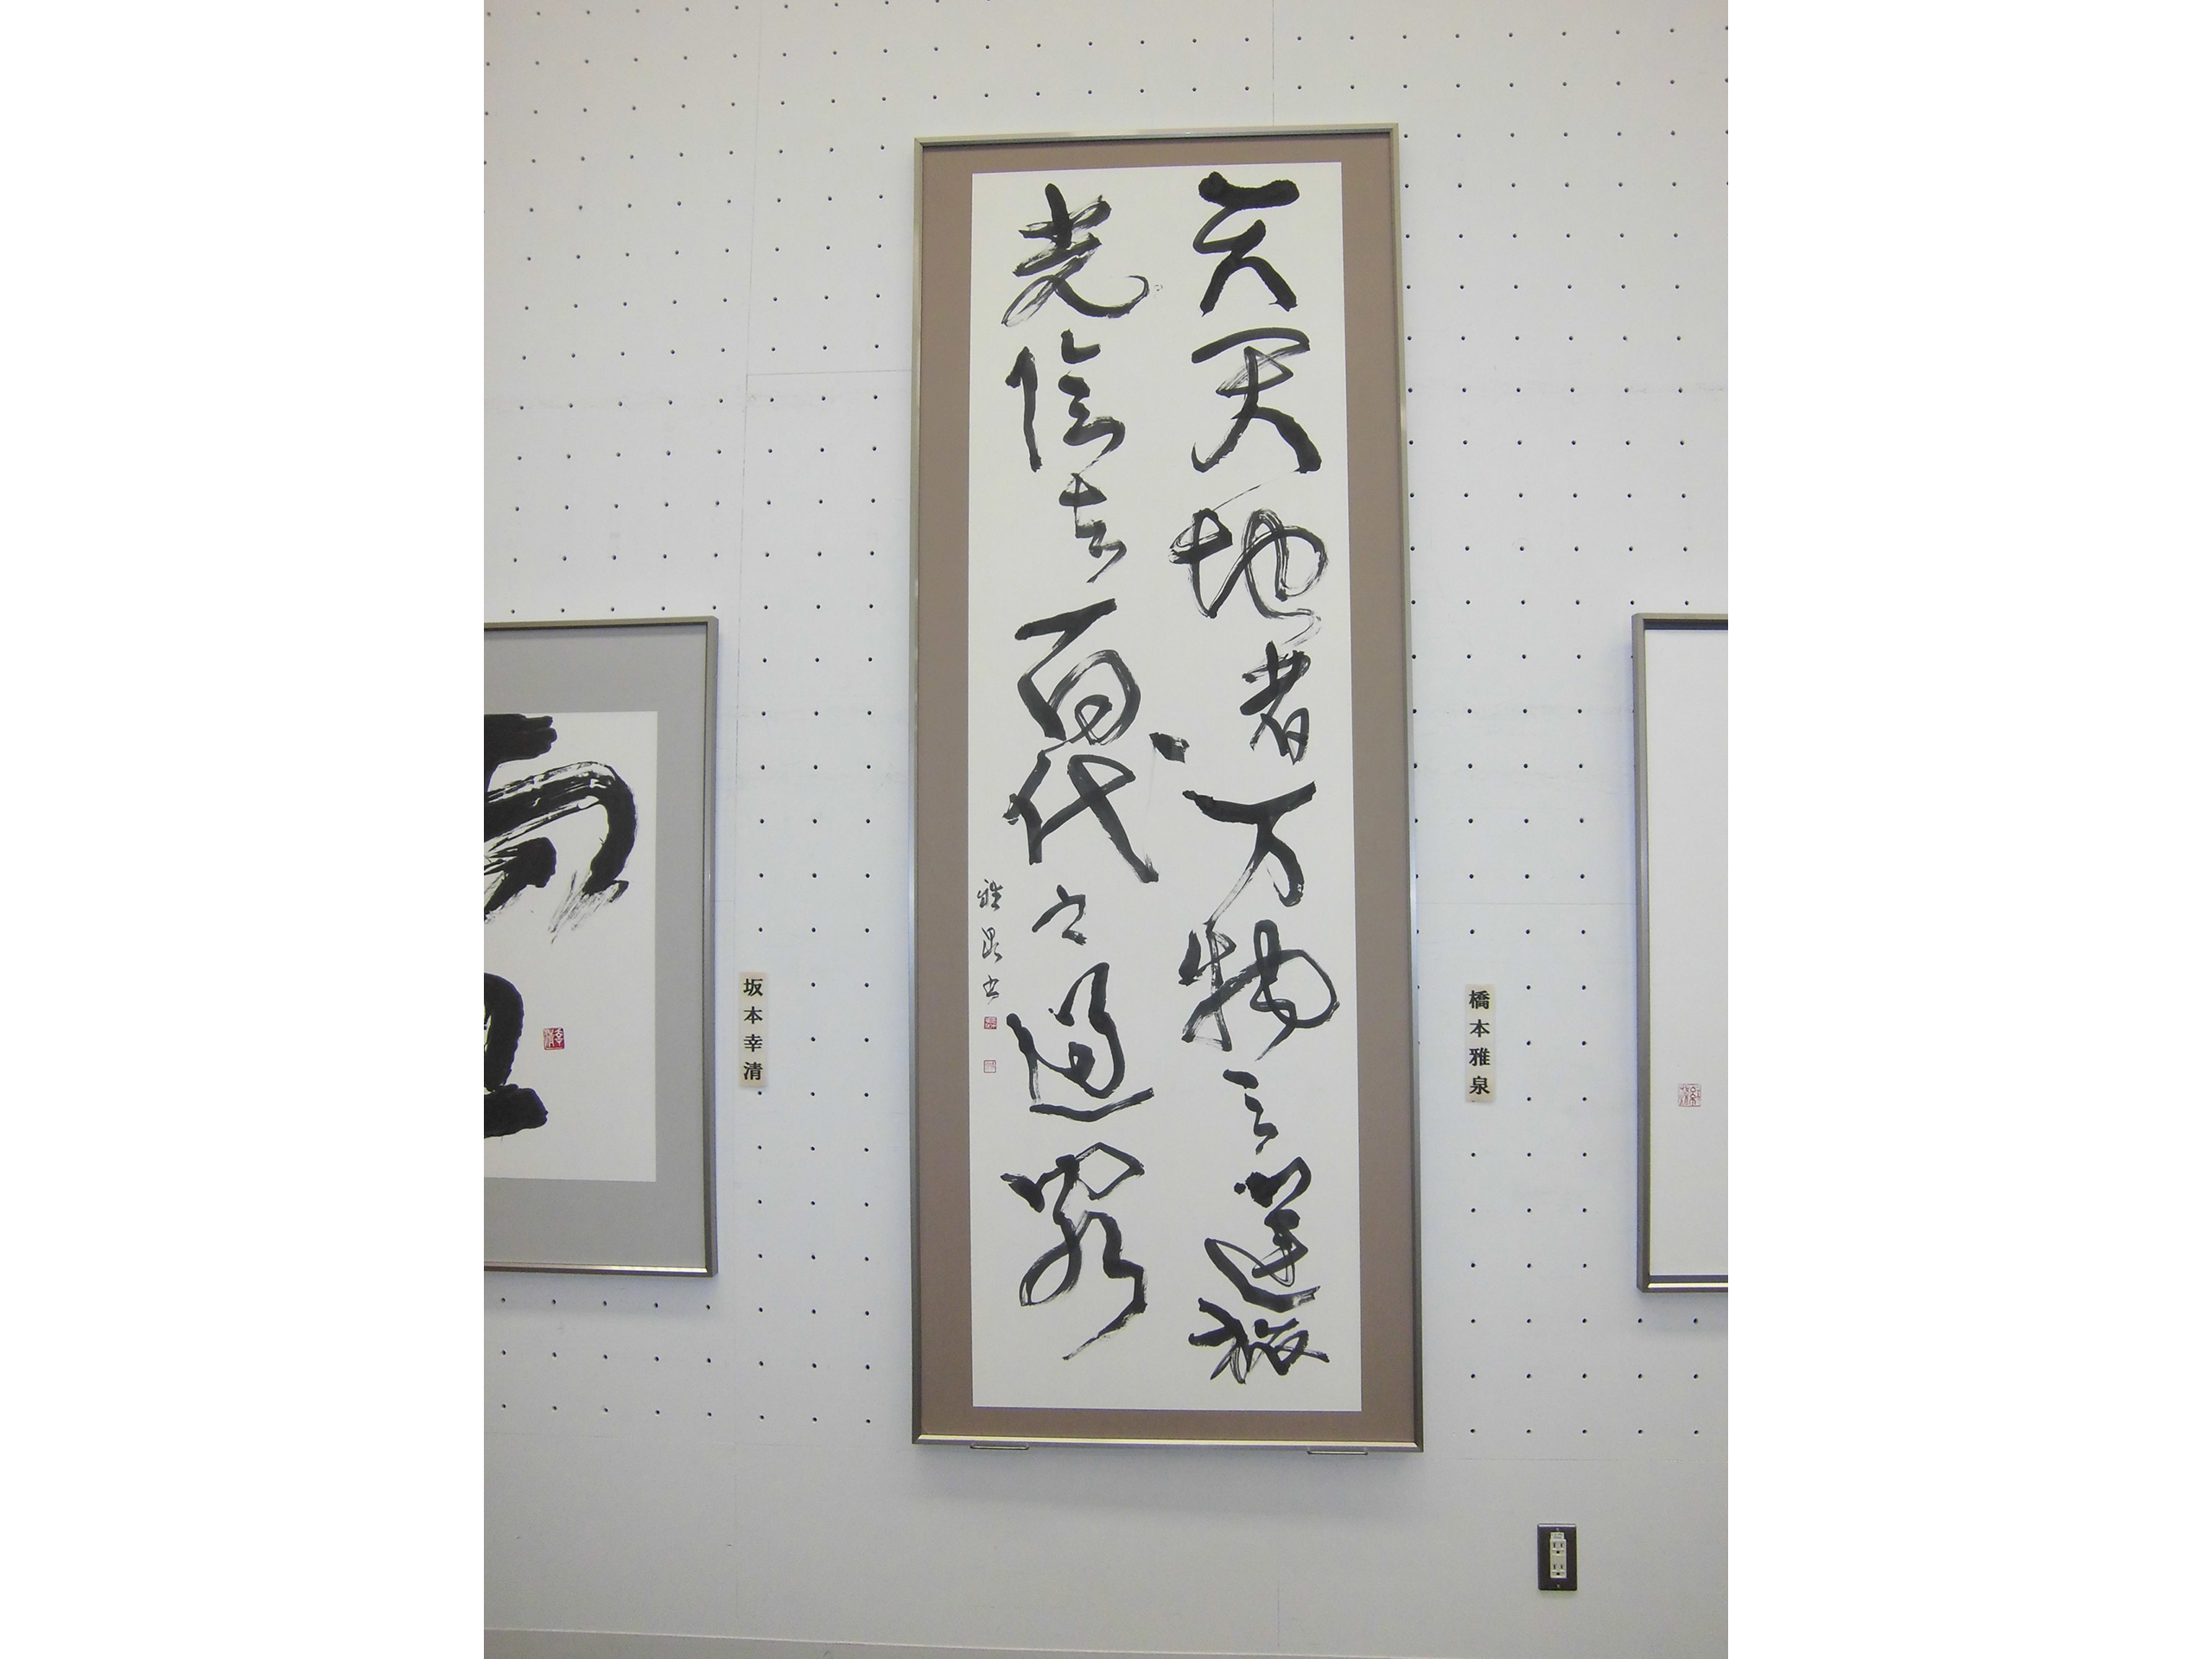 夫天地者万物之逆旅
光陰者百代之過客
雅泉書
橋本雅泉
坂本幸清